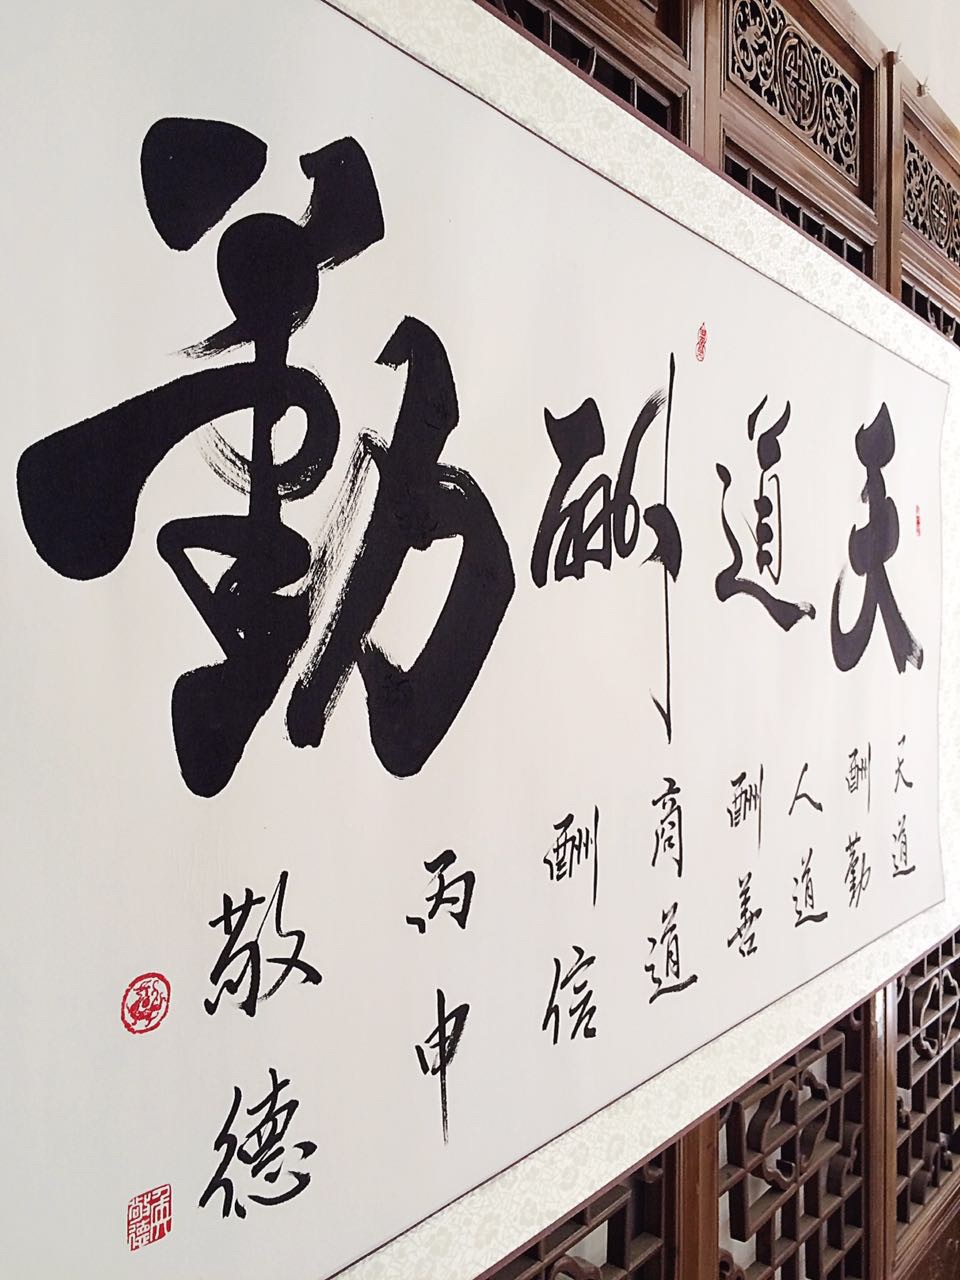 天道酬勤
天道
酬勤
人道
酬善
商道
酬信
丙申
敬德